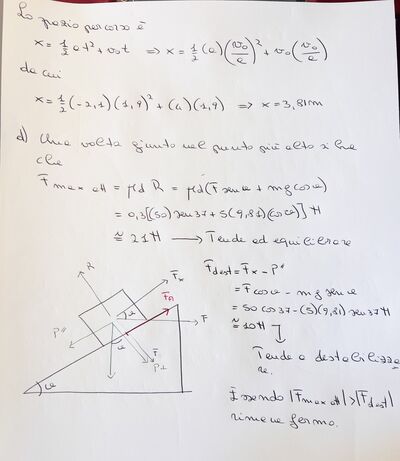 Lo spazio percorso è
x = 1/2 at² + v₀t ⇒ x = 1/2 (a) (v₀/a)² + v₀ (v₀/a)
da cui
x = 1/2 (-2,1)(1,9)² + (4)(1,9) ⇒ x = 3,81m
d) Una volta giunto nel punto più alto si ha
che
F max att = μd R = μd (F sen α + mg cos α)
= 0,3[(50) sen 37 + 5(9,81)(cos α)] N
≅ 21 N → Tende ad equilibrare
F dest = Fx - P"
= F cos α - mg sen α
= 50 cos 37 - (5)(9,81) sen 37 N
≅ 10 N
Tende a destabilizza
re.
Essendo |F max att| > |F dest|
rimane fermo.
R
Fx
FA
α
F
P"
α
F
P⊥
α